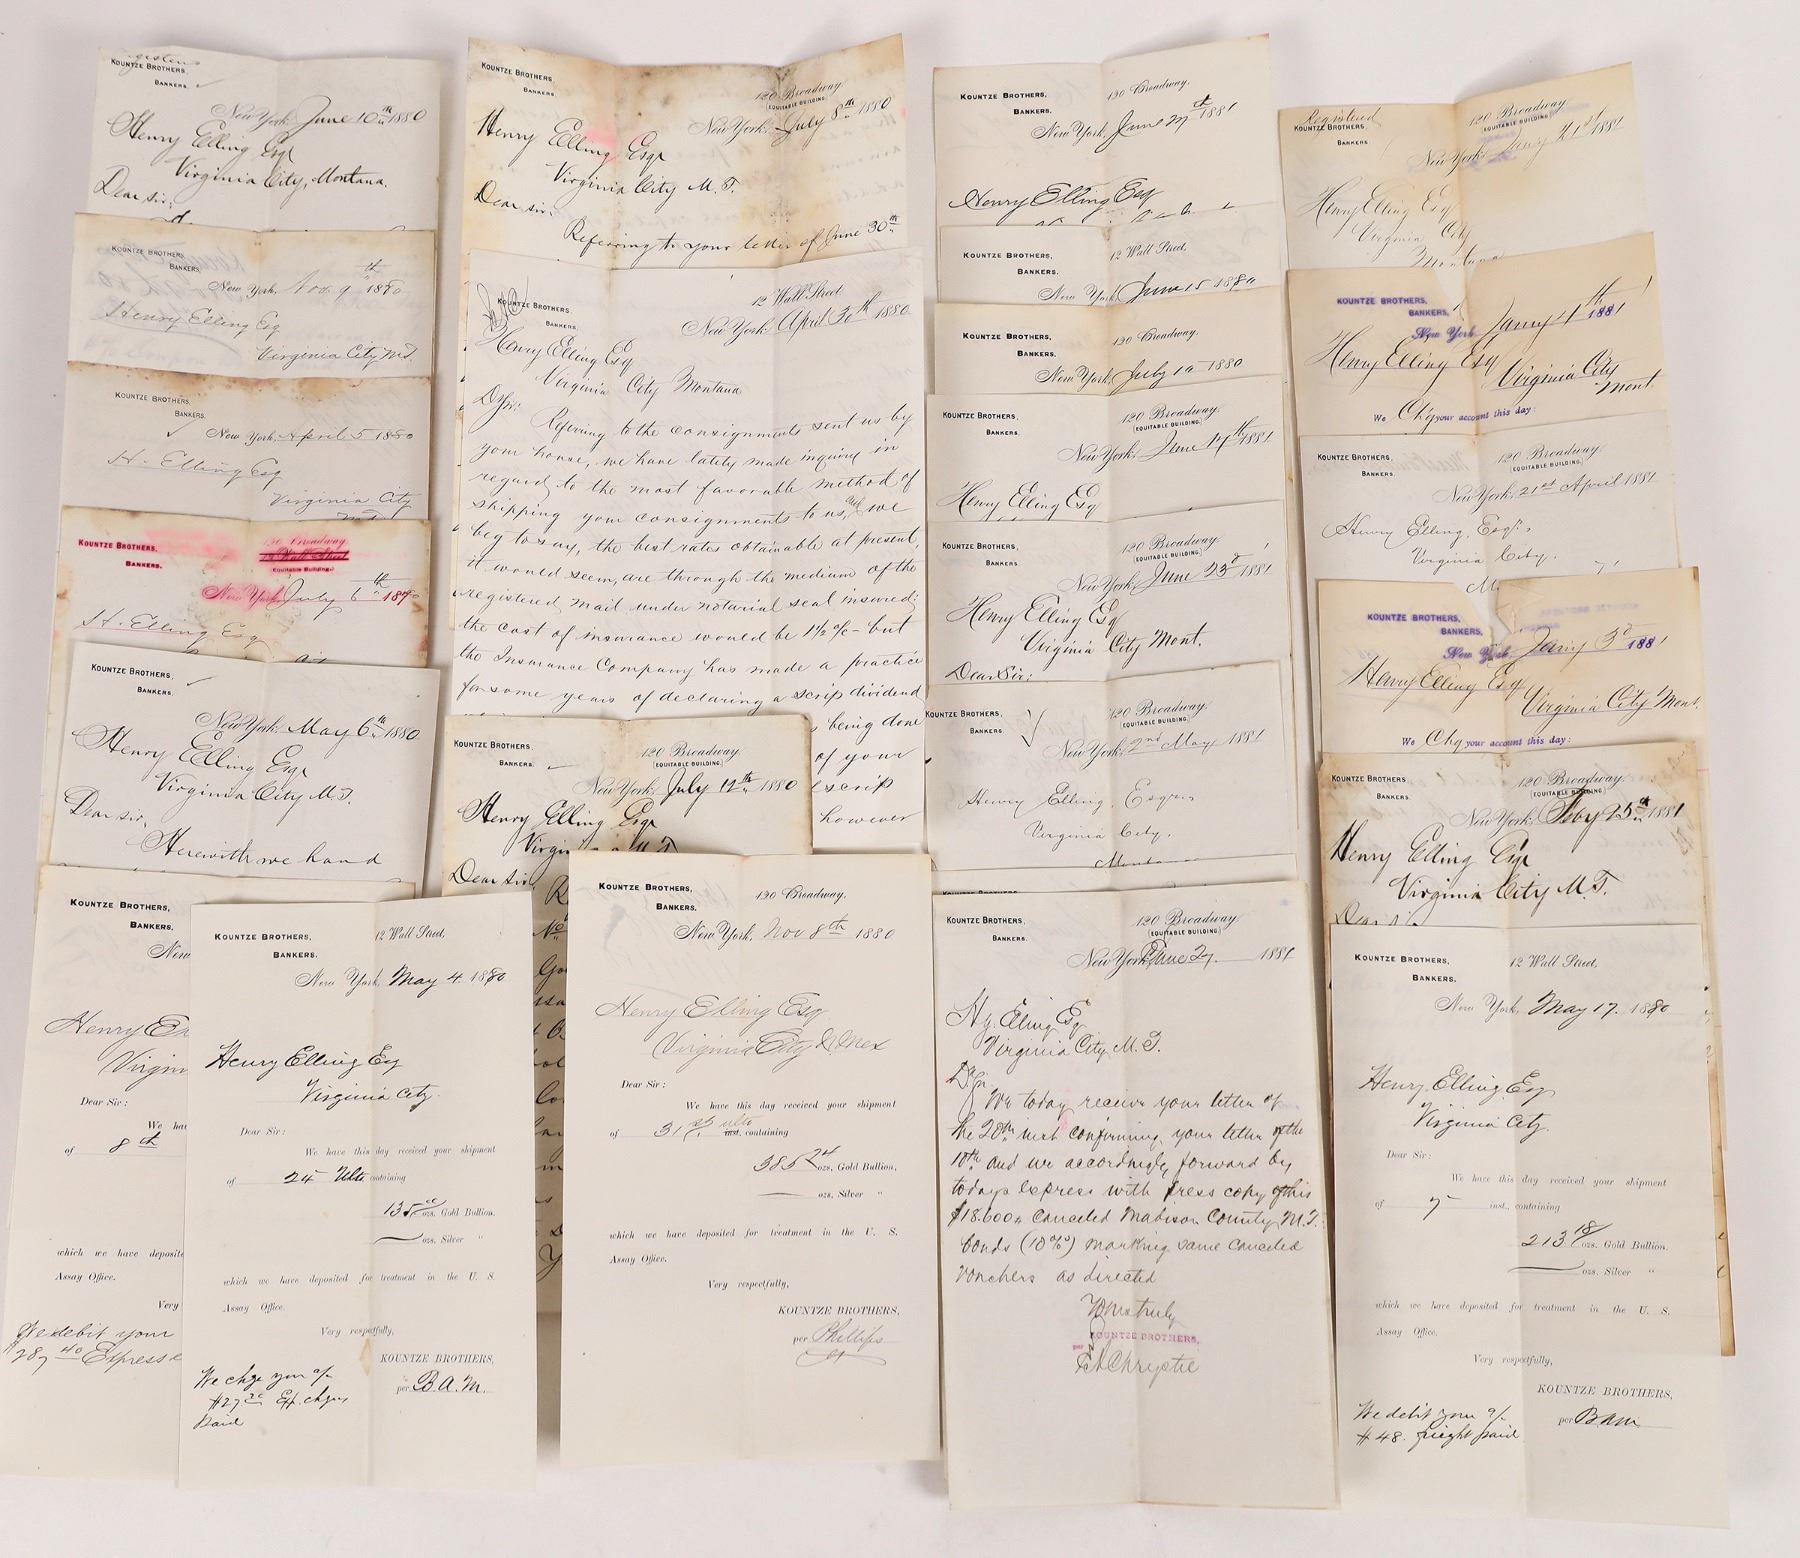 KOUNTZE BROTHERS,
BANKERS.
New York, June 10th 1880
Henry Elling Esqr
Virginia City, Montana.
Dear sir:
KOUNTZE BROTHERS,
BANKERS.
New York, Nov. 9th 1880
Henry Elling Esq
Virginia City M.T.
KOUNTZE BROTHERS,
BANKERS.
New York, April 5 1880
H. Elling Esq
Virginia City
KOUNTZE BROTHERS,
BANKERS.
120 Broadway.
12 Wall Street
Equitable Building.
New York, July 6th 1880
H. Elling Esq
KOUNTZE BROTHERS,
BANKERS.
New York, May 6th 1880
Henry Elling Esqr
Virginia City M.T.
Dear sir,
Herewith we hand
KOUNTZE BROTHERS,
BANKERS.
New
Henry E
Virgin
Dear Sir:
We ha
of 8th
which we have deposite
Assay Office.
Very
We debit your
$287 40 Express
KOUNTZE BROTHERS,
BANKERS.
12 Wall Street,
New York, May 4 1880
Henry Elling Esq
Virginia City.
Dear Sir:
We have this day received your shipment
of 24 Ulto containing
ozs. Gold Bullion.
ozs. Silver "
which we have deposited for treatment in the U. S.
Assay Office.
Very respectfully,
KOUNTZE BROTHERS,
per B.A.M.
We chge your a/c
Paid
KOUNTZE BROTHERS,
BANKERS.
120 Broadway.
(EQUITABLE BUILDING)
New York, July 8th 1880
Henry Elling Esqr
Virginia City M. T.
Dear sir:
Referring to your letter of June 30th
KOUNTZE BROTHERS,
BANKERS.
12 Wall Street
New York, April 30th 1880
Henry Elling Esq
Virginia City Montana
D Sir: Referring to the consignments sent us by
your house, we have lately made inquiry in
regard to the most favorable method of
shipping your consignments to us, & we
beg to say, the best rates obtainable at present,
it would seem, are through the medium of the
registered mail under notarial seal insured;
the cost of insurance would be 1½ % - but
the Insurance Company has made a practice
for some years of declaring a scrip dividend
being done
of your
scrip
however
KOUNTZE BROTHERS,
BANKERS.
120 Broadway.
(EQUITABLE BUILDING)
New York, July 12th 1880
Henry Elling Esqr
Virgin M.T.
Dear sir,
KOUNTZE BROTHERS,
BANKERS.
120 Broadway.
New York, Nov 8th 1880
Henry Elling Esq
Virginia City
Dear Sir:
We have this day received your shipment
of 31st ulto inst. containing
385 24 ozs. Gold Bullion,
ozs. Silver "
which we have deposited for treatment in the U. S.
Assay Office.
Very respectfully,
KOUNTZE BROTHERS,
per Phillips
KOUNTZE BROTHERS,
BANKERS.
120 Broadway.
New York, June 27th 1881
Henry Elling Esq
KOUNTZE BROTHERS,
BANKERS.
12 Wall Street,
New York, June 15 1880
KOUNTZE BROTHERS,
BANKERS.
120 Broadway.
New York, July 10 1880
KOUNTZE BROTHERS,
BANKERS.
120 Broadway.
(EQUITABLE BUILDING)
New York, June 17th 1881
Henry Elling Esq
KOUNTZE BROTHERS,
BANKERS.
120 Broadway.
(EQUITABLE BUILDING)
New York, June 23d 1881
Henry Elling Esq
Virginia City Mont.
Dear Sir:
KOUNTZE BROTHERS,
BANKERS.
120 Broadway.
(EQUITABLE BUILDING)
New York, 2nd May 1881
Henry Elling, Esqre
Virginia City,
Montana
KOUNTZE BROTHERS,
BANKERS.
120 Broadway.
(EQUITABLE BUILDING)
New York, June 27. 1881
Hy. Elling Esq
Virginia City M. T.
D Sir
We today receive your letter of
the 20th inst confirming your letter of the
10th and we accordingly forward by
todays express with press copy of this
$18.600 canceled Madison County M.T.
bonds (10%) marking same canceled
vouchers as directed
Yours truly
KOUNTZE BROTHERS,
per
Chrystie
Registered
KOUNTZE BROTHERS,
BANKERS.
120 Broadway
(EQUITABLE BUILDING)
New York, Jany 21st 1881
Henry Elling Esq
Virginia City
Montana
KOUNTZE BROTHERS,
BANKERS,
New York Janry 4th 1881
Henry Elling Esq
Virginia City
Mont.
We Chg your account this day:
KOUNTZE BROTHERS,
BANKERS.
120 Broadway.
(EQUITABLE BUILDING)
New York, 21st April 1881
Henry Elling, Esqre,
Virginia City.
KOUNTZE BROTHERS,
BANKERS,
New York Janry 3d 1881
Henry Elling Esq
Virginia City Mont.
We Chg your account this day:
KOUNTZE BROTHERS
BANKERS.
120 Broadway.
(EQUITABLE BUILDING)
New York, Feby 25th 1881
Henry Elling Esqr
Virginia City M. T.
Dear Sir
KOUNTZE BROTHERS,
BANKERS.
12 Wall Street,
New York, May 17. 1880
Henry Elling Esq
Virginia City.
Dear Sir:
We have this day received your shipment
of 7 inst., containing
213 18 ozs. Gold Bullion.
ozs. Silver "
which we have deposited for treatment in the U. S.
Assay Office.
Very respectfully,
KOUNTZE BROTHERS,
per BAM
We debit your a/c
$48. freight paid